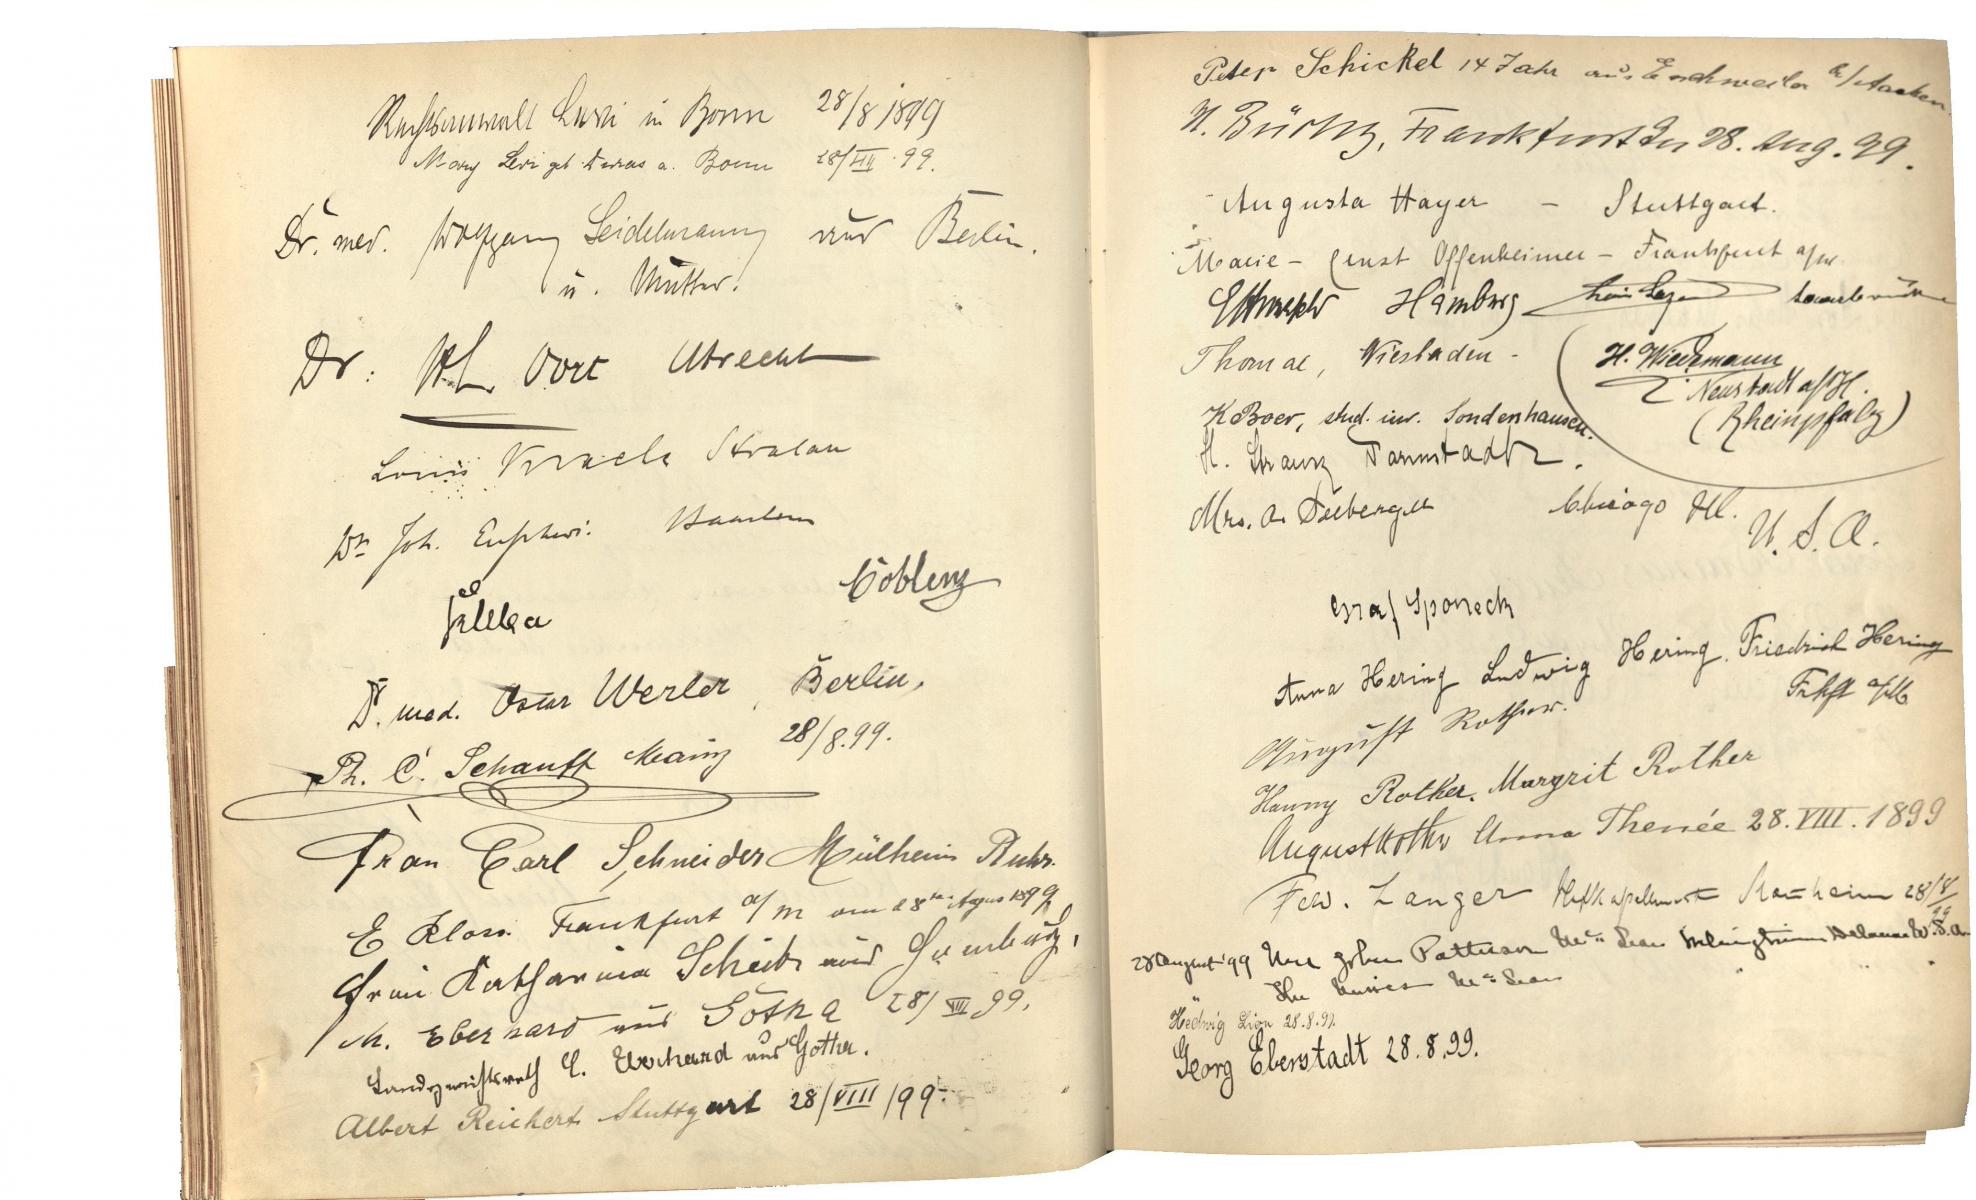 Rechtsanwalt Levi in Bonn 28/8 1899
Mary Levi geb. a. Bonn 28/VIII. 99.
Dr. med. Wolfgang Seidelmann aus Berlin.
u. Mutter.
Dr. Oort Utrecht
Louis Stralau
Dr. Joh. Haarlem
Coblenz
Dr. med. Oscar Werler, Berlin,
Ph. C. Schauff Mainz 28/8.99.
Frau Carl Schneider Mülheim Ruhr.
E Kloss Frankfurt a/M am 28ten August 1899
Frau Katharina Scheib aus
M. Eberhard aus Gotha 28/VIII 99.
Landgerichtsrath E. Eberhard aus Gotha.
Albert Reichert Stuttgart 28/VIII/99.
Peter Schickel 14 Jahr aus Eschweiler b/Aachen
Frankfurt 28. Aug. 99.
Augusta Hayer - Stuttgart.
Marie - Ernst Offenheimer - Frankfurt a/M.
Hamburg
Thomae, Wiesbaden -
H. Wiedemann
Neustadt a/H.
(Rheinpfalz)
K Boer, stud. iur. Sondershausen.
H. Strauss Darmstadt.
Mrs. A. Chicago Ill.
U. S. A.
Graf Sponeck
Anna Hering Ludwig Hering. Friedrich Hering
Frkft a/M
August Rother.
Hanny Rother. Margrit Rother
August Rother Anna Thenée 28. VIII. 1899
Ferd. Langer Hofkapellmeister Mannheim 28/8/99
28 August '99 Patterson Mc Lean Wilmington Delaware U.S.A.
The Misses Mc Lean " " "
Hedwig Lion 28.8.99.
Georg Eberstadt 28.8.99.